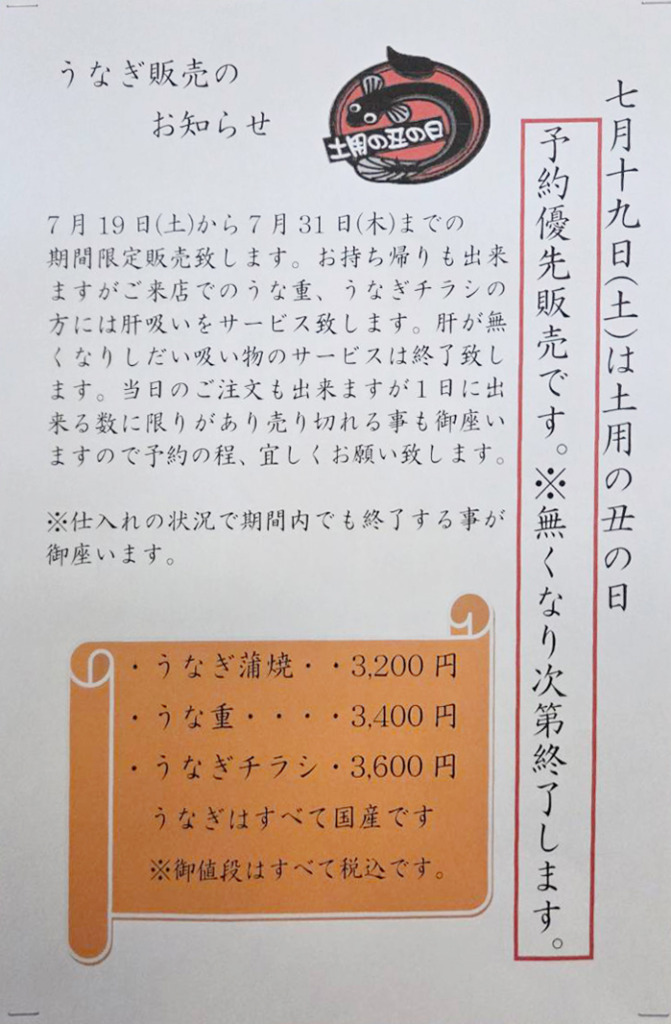 うなぎ販売の
お知らせ
土用の丑の日
七月十九日(土)は土用の丑の日
予約優先販売です。※無くなり次第終了します。
7月19日(土)から7月31日(木)までの
期間限定販売致します。お持ち帰りも出来
ますがご来店でのうな重、うなぎチラシの
方には肝吸いをサービス致します。肝が無
くなりしだい吸い物のサービスは終了致し
ます。当日のご注文も出来ますが1日に出
来る数に限りがあり売り切れる事も御座い
ますので予約の程、宜しくお願い致します。
※仕入れの状況で期間内でも終了する事が
御座います。
・うなぎ蒲焼・・3,200円
・うな重・・・・3,400円
・うなぎチラシ・3,600円
うなぎはすべて国産です
※御値段はすべて税込です。